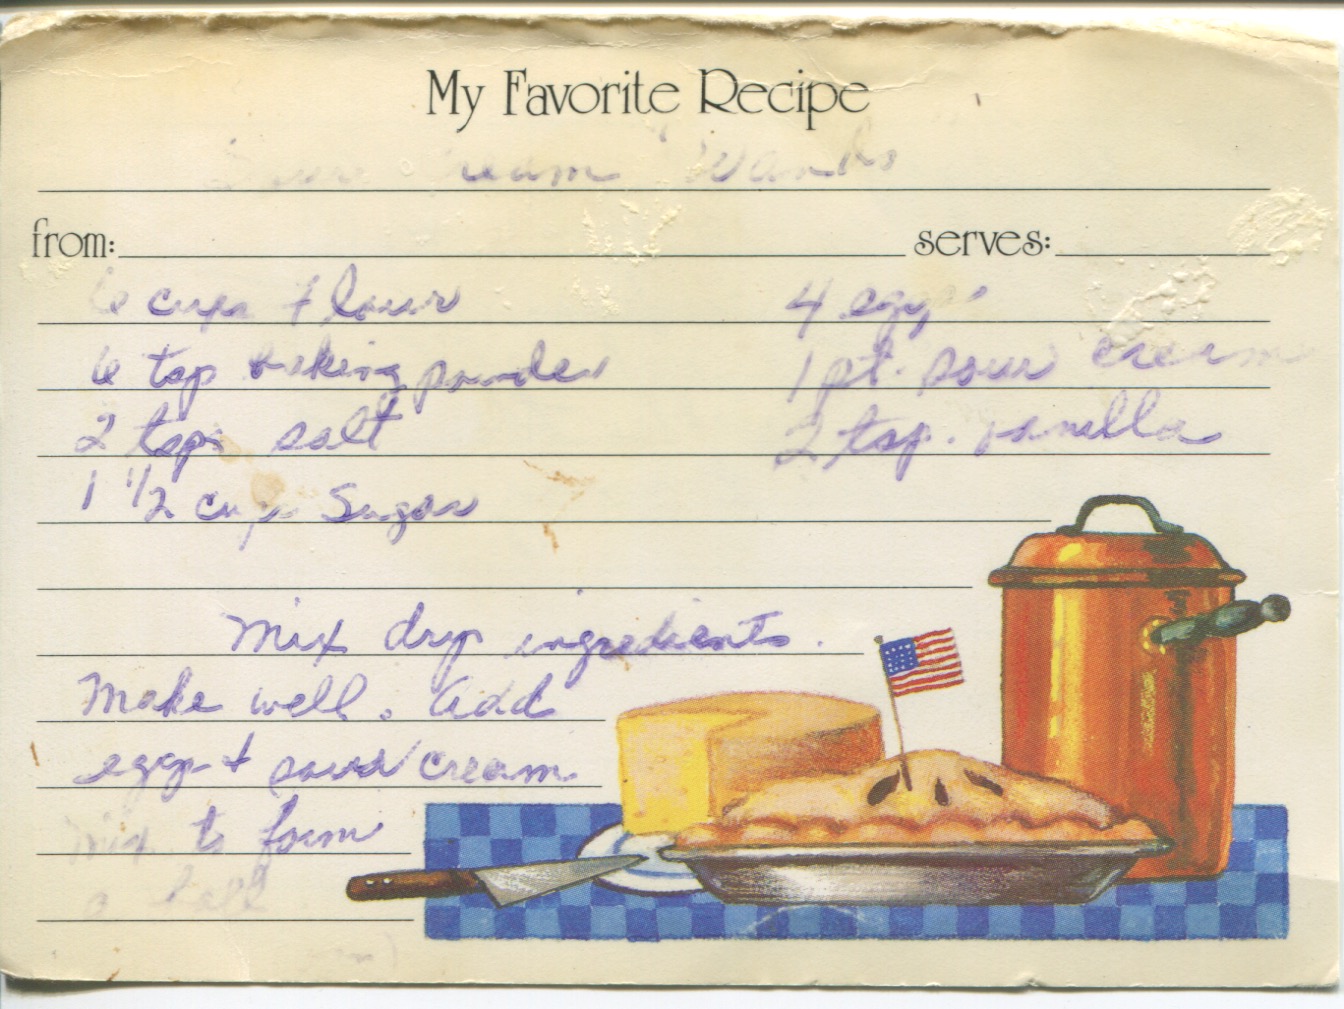 My Favorite Recipe
Sour Cream Wands
from: serves:
6 cups flour 4 eggs
6 tsp baking powder 1 pt. sour cream
2 tsps salt 2 tsp. vanilla
1 1/2 cups Sugar
Mix dry ingredients.
Make well. Add
eggs + sour cream
Mix to form
a ball